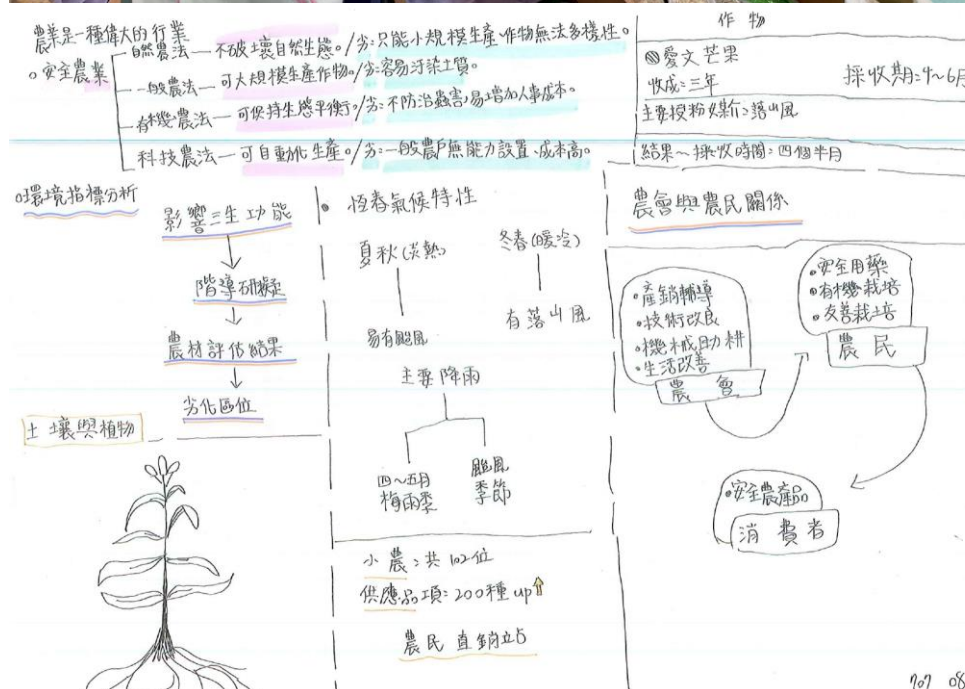 農業是一種偉大的行業
。安全農業
自然農法—不破壞自然生態。/劣:只能小規模生產、作物無法多樣性。
一般農法—可大規模生產作物。/劣:容易汙染土質。
有機農法—可保持生態平衡。/劣:不防治蟲害,易增加人事成本。
科技農法—可自動化生產。/劣:一般農戶無能力設置、成本高。
作物
愛文芒果
收成:三年
採收期:4~6月
主要授粉媒介:落山風
結果~採收時間:四個半月
環境指標分析
影響三生功能
階導研擬
農材評估結果
劣化區位
土壤與植物
恆春氣候特性
夏秋(炎熱)
冬春(暖冷)
易有颱風
有落山風
主要降雨
四~五月
梅雨季
颱風
季節
小農:共102位
供應品項:200種up
農民直銷站
農會與農民關係
產銷輔導
技術改良
機械助耕
生活改善
農會
安全用藥
有機栽培
友善栽培
農民
安全農產品
消費者
707 08